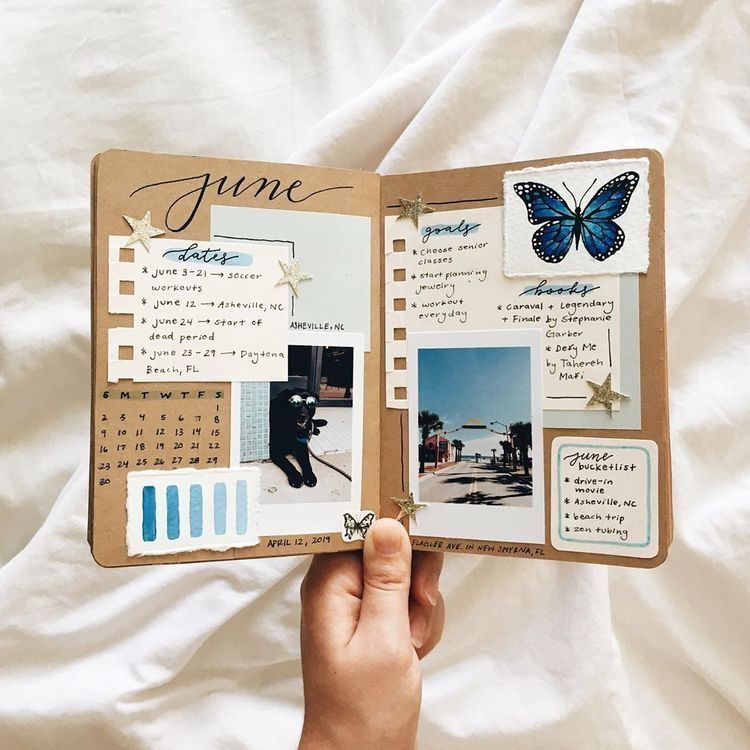 june
dates
* june 3-21 → soccer
workouts
* june 12 → Asheville, NC
* june 24 → start of
dead period
* june 23-29 → Daytona
Beach, FL
ASHEVILLE, NC
S M T W T F S
1
2 3 4 5 6 7 8
9 10 11 12 13 14 15
16 17 18 19 20 21 22
23 24 25 26 27 28 29
30
APRIL 12, 2019
goals
* choose senior
classes
* start planning
jewelry
* workout
everyday
books
* Caraval + Legendary
+ Finale by Stephanie
Garber
* Defy Me
by Tahereh
Mafi
june
bucketlist
* drive-in
movie
* Asheville, NC
* beach trip
* zen tubing
FLAGLER AVE. IN NEW SMYRNA, FL